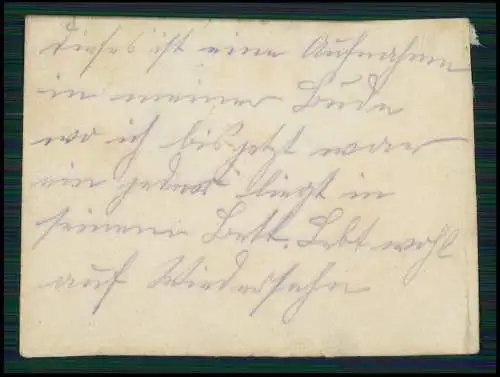 Dieses ist eine Aufnahme
in meiner Bude
wo ich bis jetzt war
ein jeder liegt in
seinem Bett. Lebt wohl
auf Wiedersehn